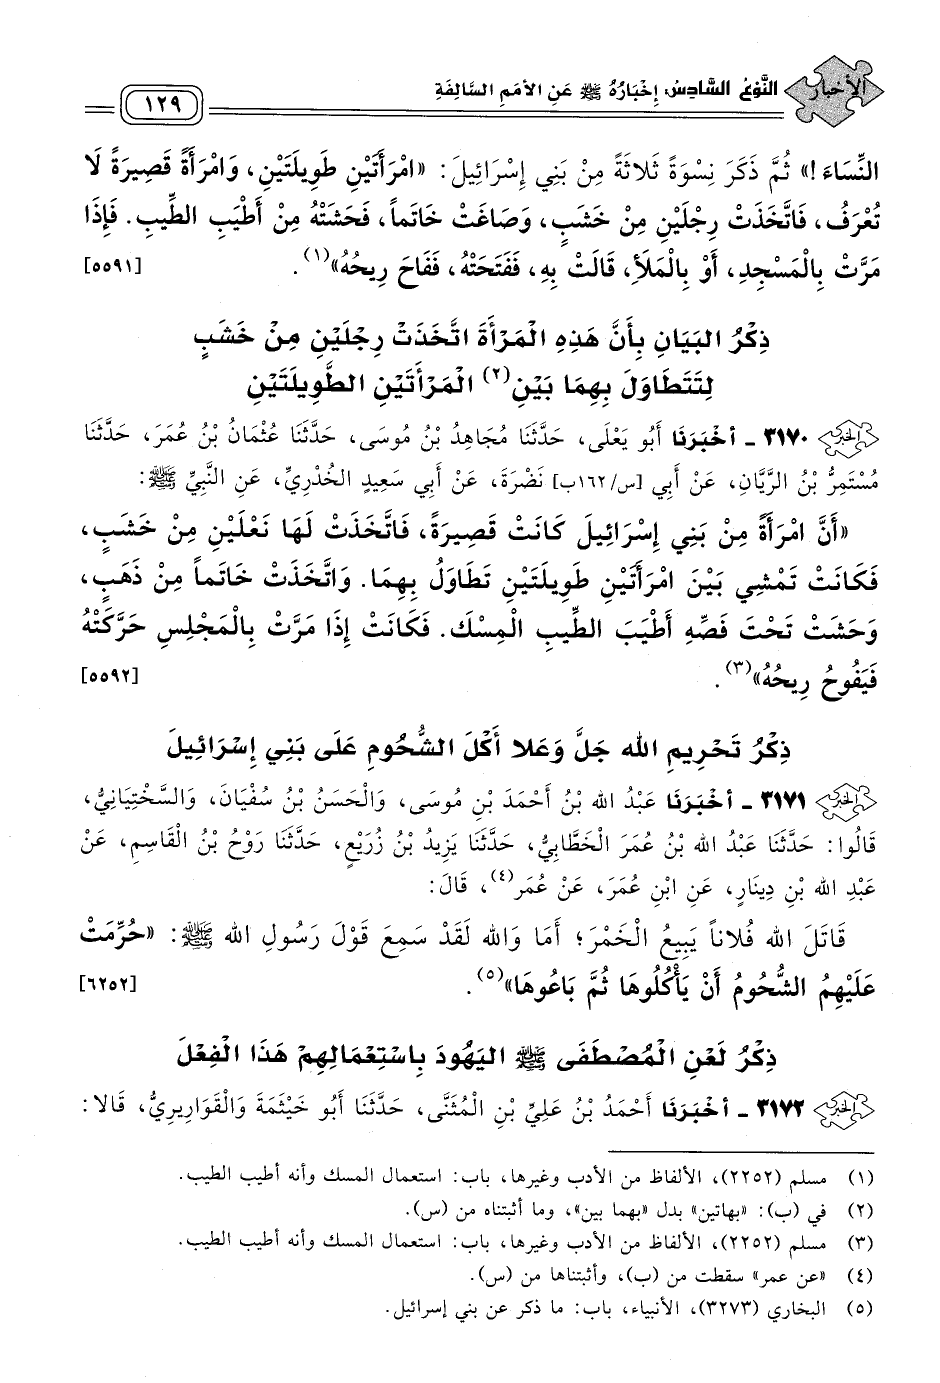 الأخبار النَّوْعُ السَّادِسُ: إخْبَارُهُ ﷺ عَنِ الأمَمِ السَّالِفَةِ ١٢٩
النِّسَاءَ!» ثُمَّ ذَكَرَ نِسْوَةً ثَلاثَةً مِنْ بَنِي إِسْرَائِيلَ: «امْرَأَتَيْنِ طَوِيلَتَيْنِ، وَامْرَأَةً قَصِيرَةً لَا
تُعْرَفُ، فَاتَّخَذَتْ رِجْلَيْنِ مِنْ خَشَبٍ، وَصَاغَتْ خَاتَماً، فَحَشَتْهُ مِنْ أَطْيَبِ الطِّيبِ. فَإِذَا
مَرَّتْ بِالْمَسْجِدِ، أَوْ بِالْمَلَأِ، قَالَتْ بِهِ، فَفَتَحَتْهُ، فَفَاحَ رِيحُهُ»(١). [٥٥٩١]
ذِكْرُ البَيَانِ بِأَنَّ هَذِهِ الْمَرْأَةَ اتَّخَذَتْ رِجْلَيْنِ مِنْ خَشَبٍ
لِتَتَطَاوَلَ بِهِمَا بَيْنَ(٢) الْمَرْأَتَيْنِ الطَّوِيلَتَيْنِ
٣١٧٠ - أخْبَرَنَا أَبُو يَعْلَى، حَدَّثَنَا مُجَاهِدُ بْنُ مُوسَى، حَدَّثَنَا عُثْمَانُ بْنُ عُمَرَ، حَدَّثَنَا
مُسْتَمِرُّ بْنُ الرَّيَّانِ، عَنْ أَبِي [س/١٦٢ب] نَضْرَةَ، عَنْ أَبِي سَعِيدٍ الْخُدْرِيِّ، عَنِ النَّبِيِّ ﷺ:
«أَنَّ امْرَأَةً مِنْ بَنِي إِسْرَائِيلَ كَانَتْ قَصِيرَةً، فَاتَّخَذَتْ لَهَا نَعْلَيْنِ مِنْ خَشَبٍ،
فَكَانَتْ تَمْشِي بَيْنَ امْرَأَتَيْنِ طَوِيلَتَيْنِ تَطَاوَلُ بِهِمَا. وَاتَّخَذَتْ خَاتَماً مِنْ ذَهَبٍ،
وَحَشَتْ تَحْتَ فَصِّهِ أَطْيَبَ الطِّيبِ الْمِسْكَ. فَكَانَتْ إِذَا مَرَّتْ بِالْمَجْلِسِ حَرَّكَتْهُ
فَيَفُوحُ رِيحُهُ»(٣). [٥٥٩٢]
ذِكْرُ تَحْرِيمِ اللهِ جَلَّ وَعَلا أكْلَ الشُّحُومِ عَلَى بَنِي إِسْرَائِيلَ
٣١٧١ - أخْبَرَنَا عَبْدُ اللهِ بْنُ أَحْمَدَ بْنِ مُوسَى، وَالْحَسَنُ بْنُ سُفْيَانَ، وَالسَّخْتِيَانِيُّ،
قَالُوا: حَدَّثَنَا عَبْدُ اللهِ بْنُ عُمَرَ الْخَطَّابِيُّ، حَدَّثَنَا يَزِيدُ بْنُ زُرَيْعٍ، حَدَّثَنَا رَوْحُ بْنُ الْقَاسِمِ، عَنْ
عَبْدِ اللهِ بْنِ دِينَارٍ، عَنِ ابْنِ عُمَرَ، عَنْ عُمَرَ(٤)، قَالَ:
قَاتَلَ اللهُ فُلَاناً يَبِيعُ الْخَمْرَ؛ أَمَا وَاللهِ لَقَدْ سَمِعَ قَوْلَ رَسُولِ اللهِ ﷺ: «حُرِّمَتْ
عَلَيْهِمُ الشُّحُومُ أَنْ يَأْكُلُوهَا ثُمَّ بَاعُوهَا»(٥). [٦٢٥٢]
ذِكْرُ لَعْنِ الْمُصْطَفَى ﷺ اليَهُودَ بِاسْتِعْمَالِهِمْ هَذَا الْفِعْلَ
٣١٧٢ - أخْبَرَنَا أَحْمَدُ بْنُ عَلِيِّ بْنِ الْمُثَنَّى، حَدَّثَنَا أَبُو خَيْثَمَةَ وَالْقَوَارِيرِيُّ، قَالا:
(١) مسلم (٢٢٥٢)، الألفاظ من الأدب وغيرها، باب: استعمال المسك وأنه أطيب الطيب.
(٢) في (ب): «بهاتين» بدل «بهما بين»، وما أثبتناه من (س).
(٣) مسلم (٢٢٥٢)، الألفاظ من الأدب وغيرها، باب: استعمال المسك وأنه أطيب الطيب.
(٤) «عن عمر» سقطت من (ب)، وأثبتناها من (س).
(٥) البخاري (٣٢٧٣)، الأنبياء، باب: ما ذكر عن بني إسرائيل.